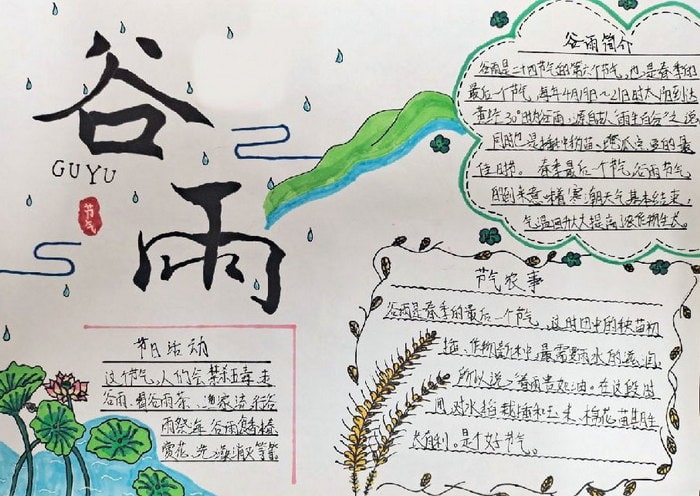 谷雨
GUYU
节气
谷雨简介
谷雨是二十四节气的第六个节气,也是春季的
最后一个节气,每年4月19日~21日时太阳到达
黄经30°时为谷雨,源自古人"雨生百谷"之说
同时也是播种移苗、埯瓜点豆的最
佳时节。春季最后一个节气谷雨节气
的到来意味着寒潮天气基本结束,
气温回升大大提高谷类作物生长。
节气农事
谷雨是春季的最后一个节气,这时田中的秧苗初
插、作物新种,最需要雨水的滋润,
所以说,春雨贵如油。在这段时
间,对水稻栽插和玉米、棉花苗期生
长有利。是个好节气。
节日活动
这个节气,人们会禁五毒走
谷雨、喝谷雨茶、渔家流行谷
雨祭海 谷雨食椿
赏花、洗澡消灾等等